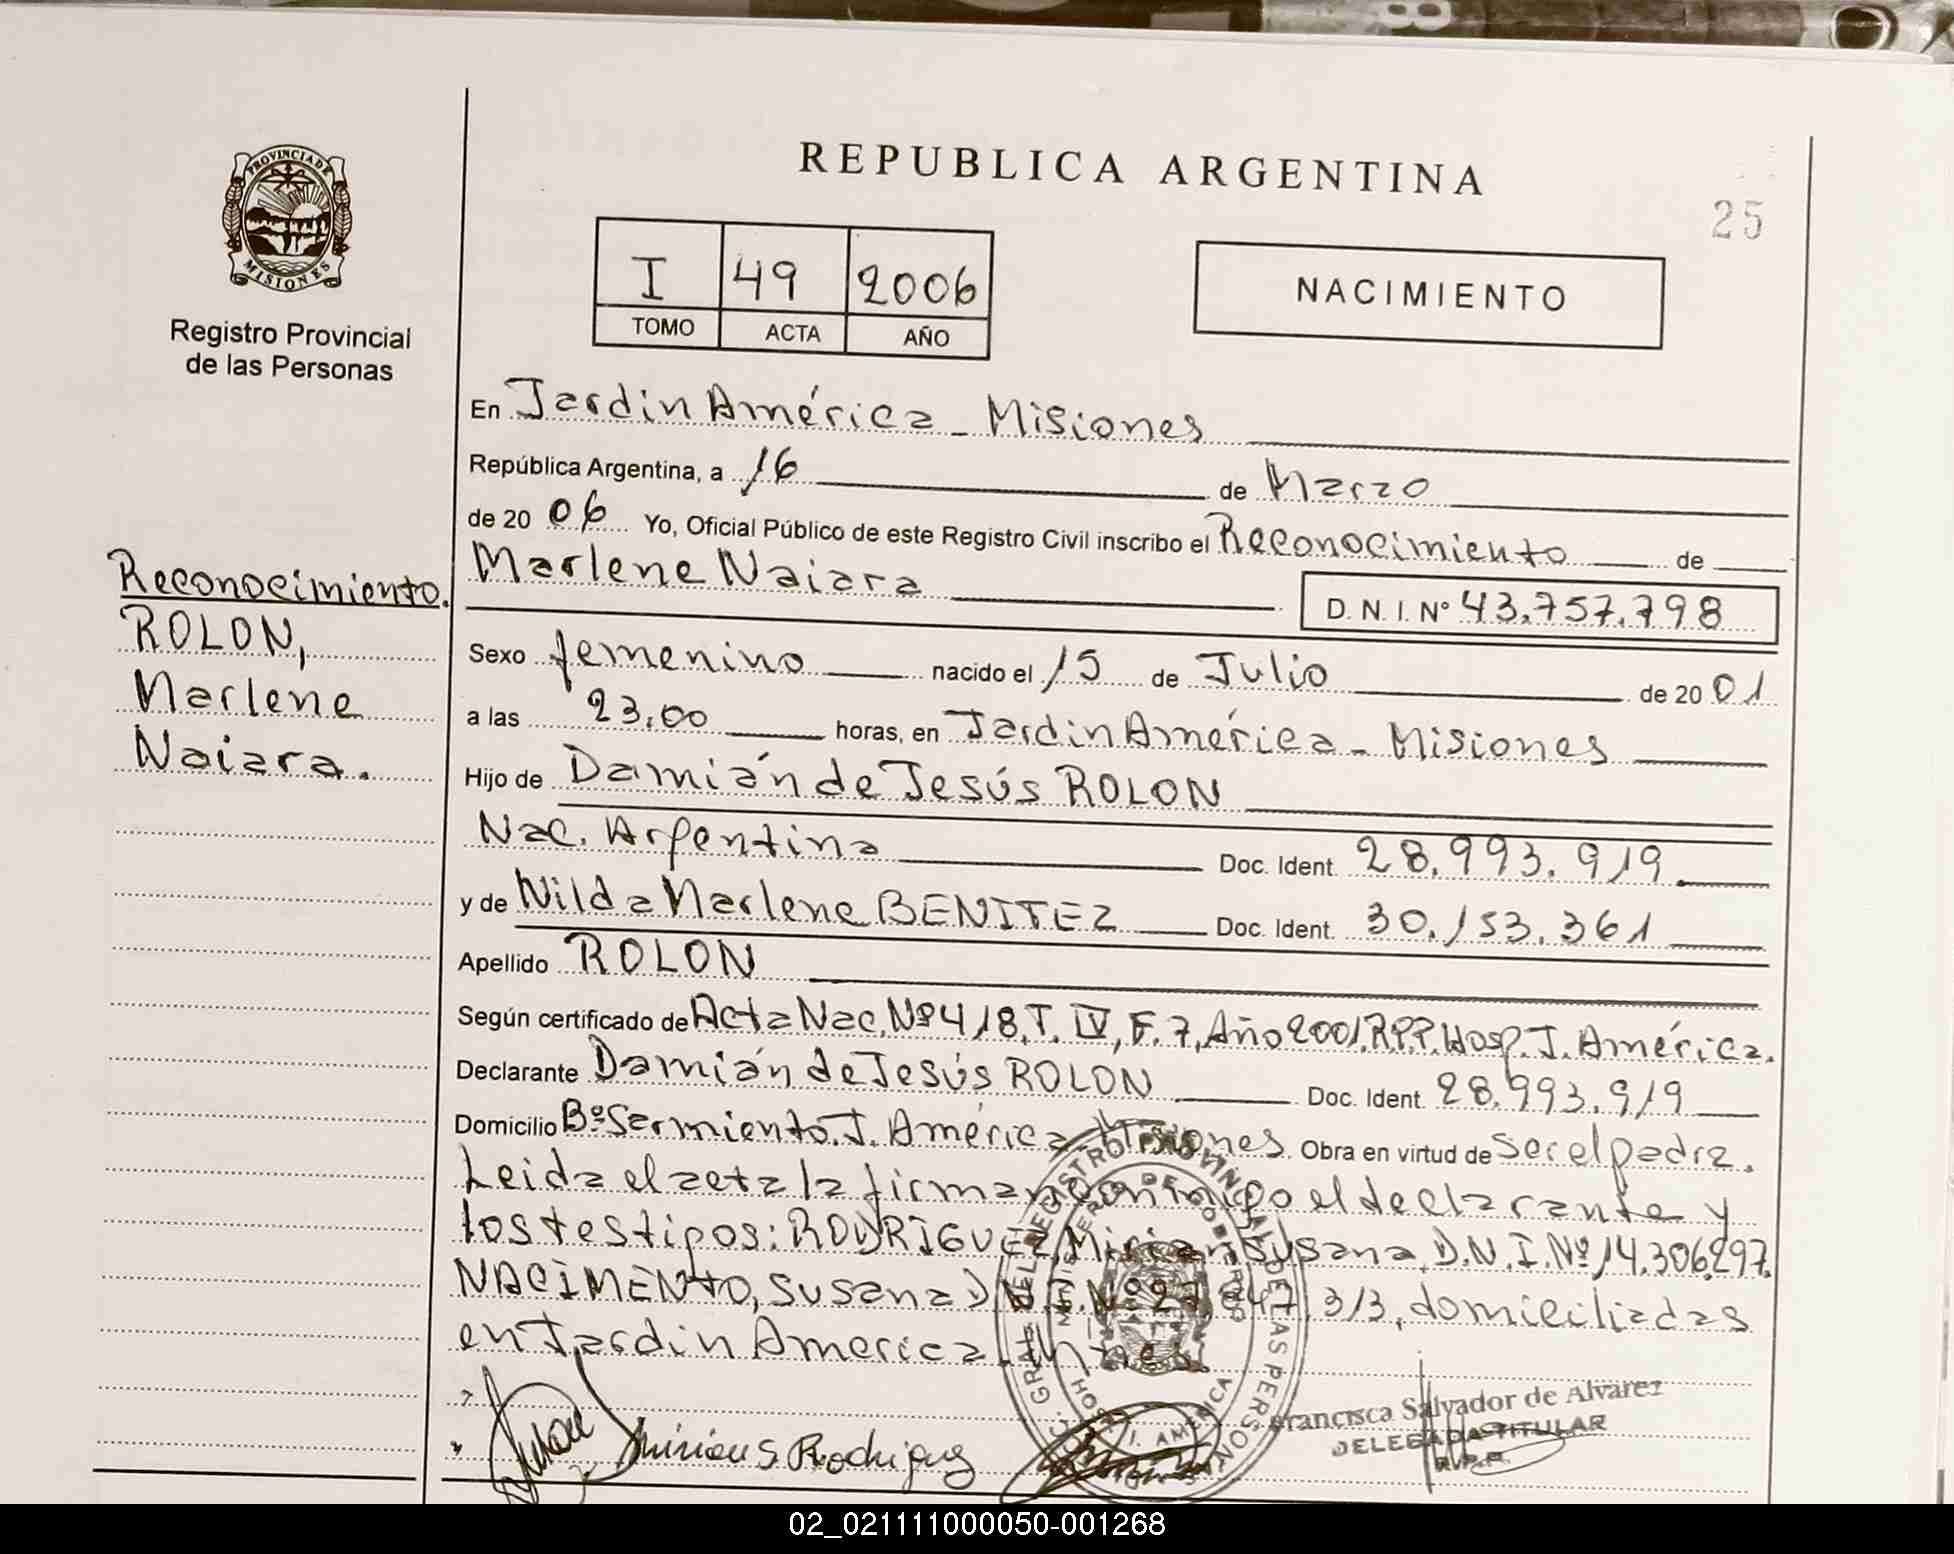 REPUBLICA ARGENTINA
25
PROVINCIA DE
MISIONES
Registro Provincial
de las Personas
I 49 2006
TOMO ACTA AÑO
NACIMIENTO
En Jardin América - Misiones
República Argentina, a 16 de Marzo
de 20 06 Yo, Oficial Público de este Registro Civil inscribo el Reconocimiento de
Marlene Naiara
D. N. I. N° 43.757.798
Reconocimiento.
ROLON,
Marlene
Naiara.
Sexo femenino nacido el 15 de Julio de 20 01
a las 23,00 horas, en Jardin América - Misiones
Hijo de Damián de Jesús ROLON
Nac. Argentina Doc. Ident. 28.993.919
y de Nilda Marlene BENITEZ Doc. Ident. 30.153.361
Apellido ROLON
Según certificado de Acta Nac. Nº 418, T. IV, F. 7, Año 2001. R.P.P. Hosp. J. América.
Declarante Damián de Jesús ROLON Doc. Ident. 28.993.919
Domicilio Bº Sarmiento. J. América Misiones. Obra en virtud de Ser el padre.
Leida el acta la firman conmigo el declarante y
los testigos: RODRIGUEZ, Mirian Susana, D.N.I. Nº 14.306.297.
NACIMENTO, Susana D.N.I. Nº 27.847.313, domiciliadas
en Jardin America
Mirian S. Rodriguez
Francisca Salvador de Alvarez
DELEGADA TITULAR
R.P.P.
02_021111000050-001268